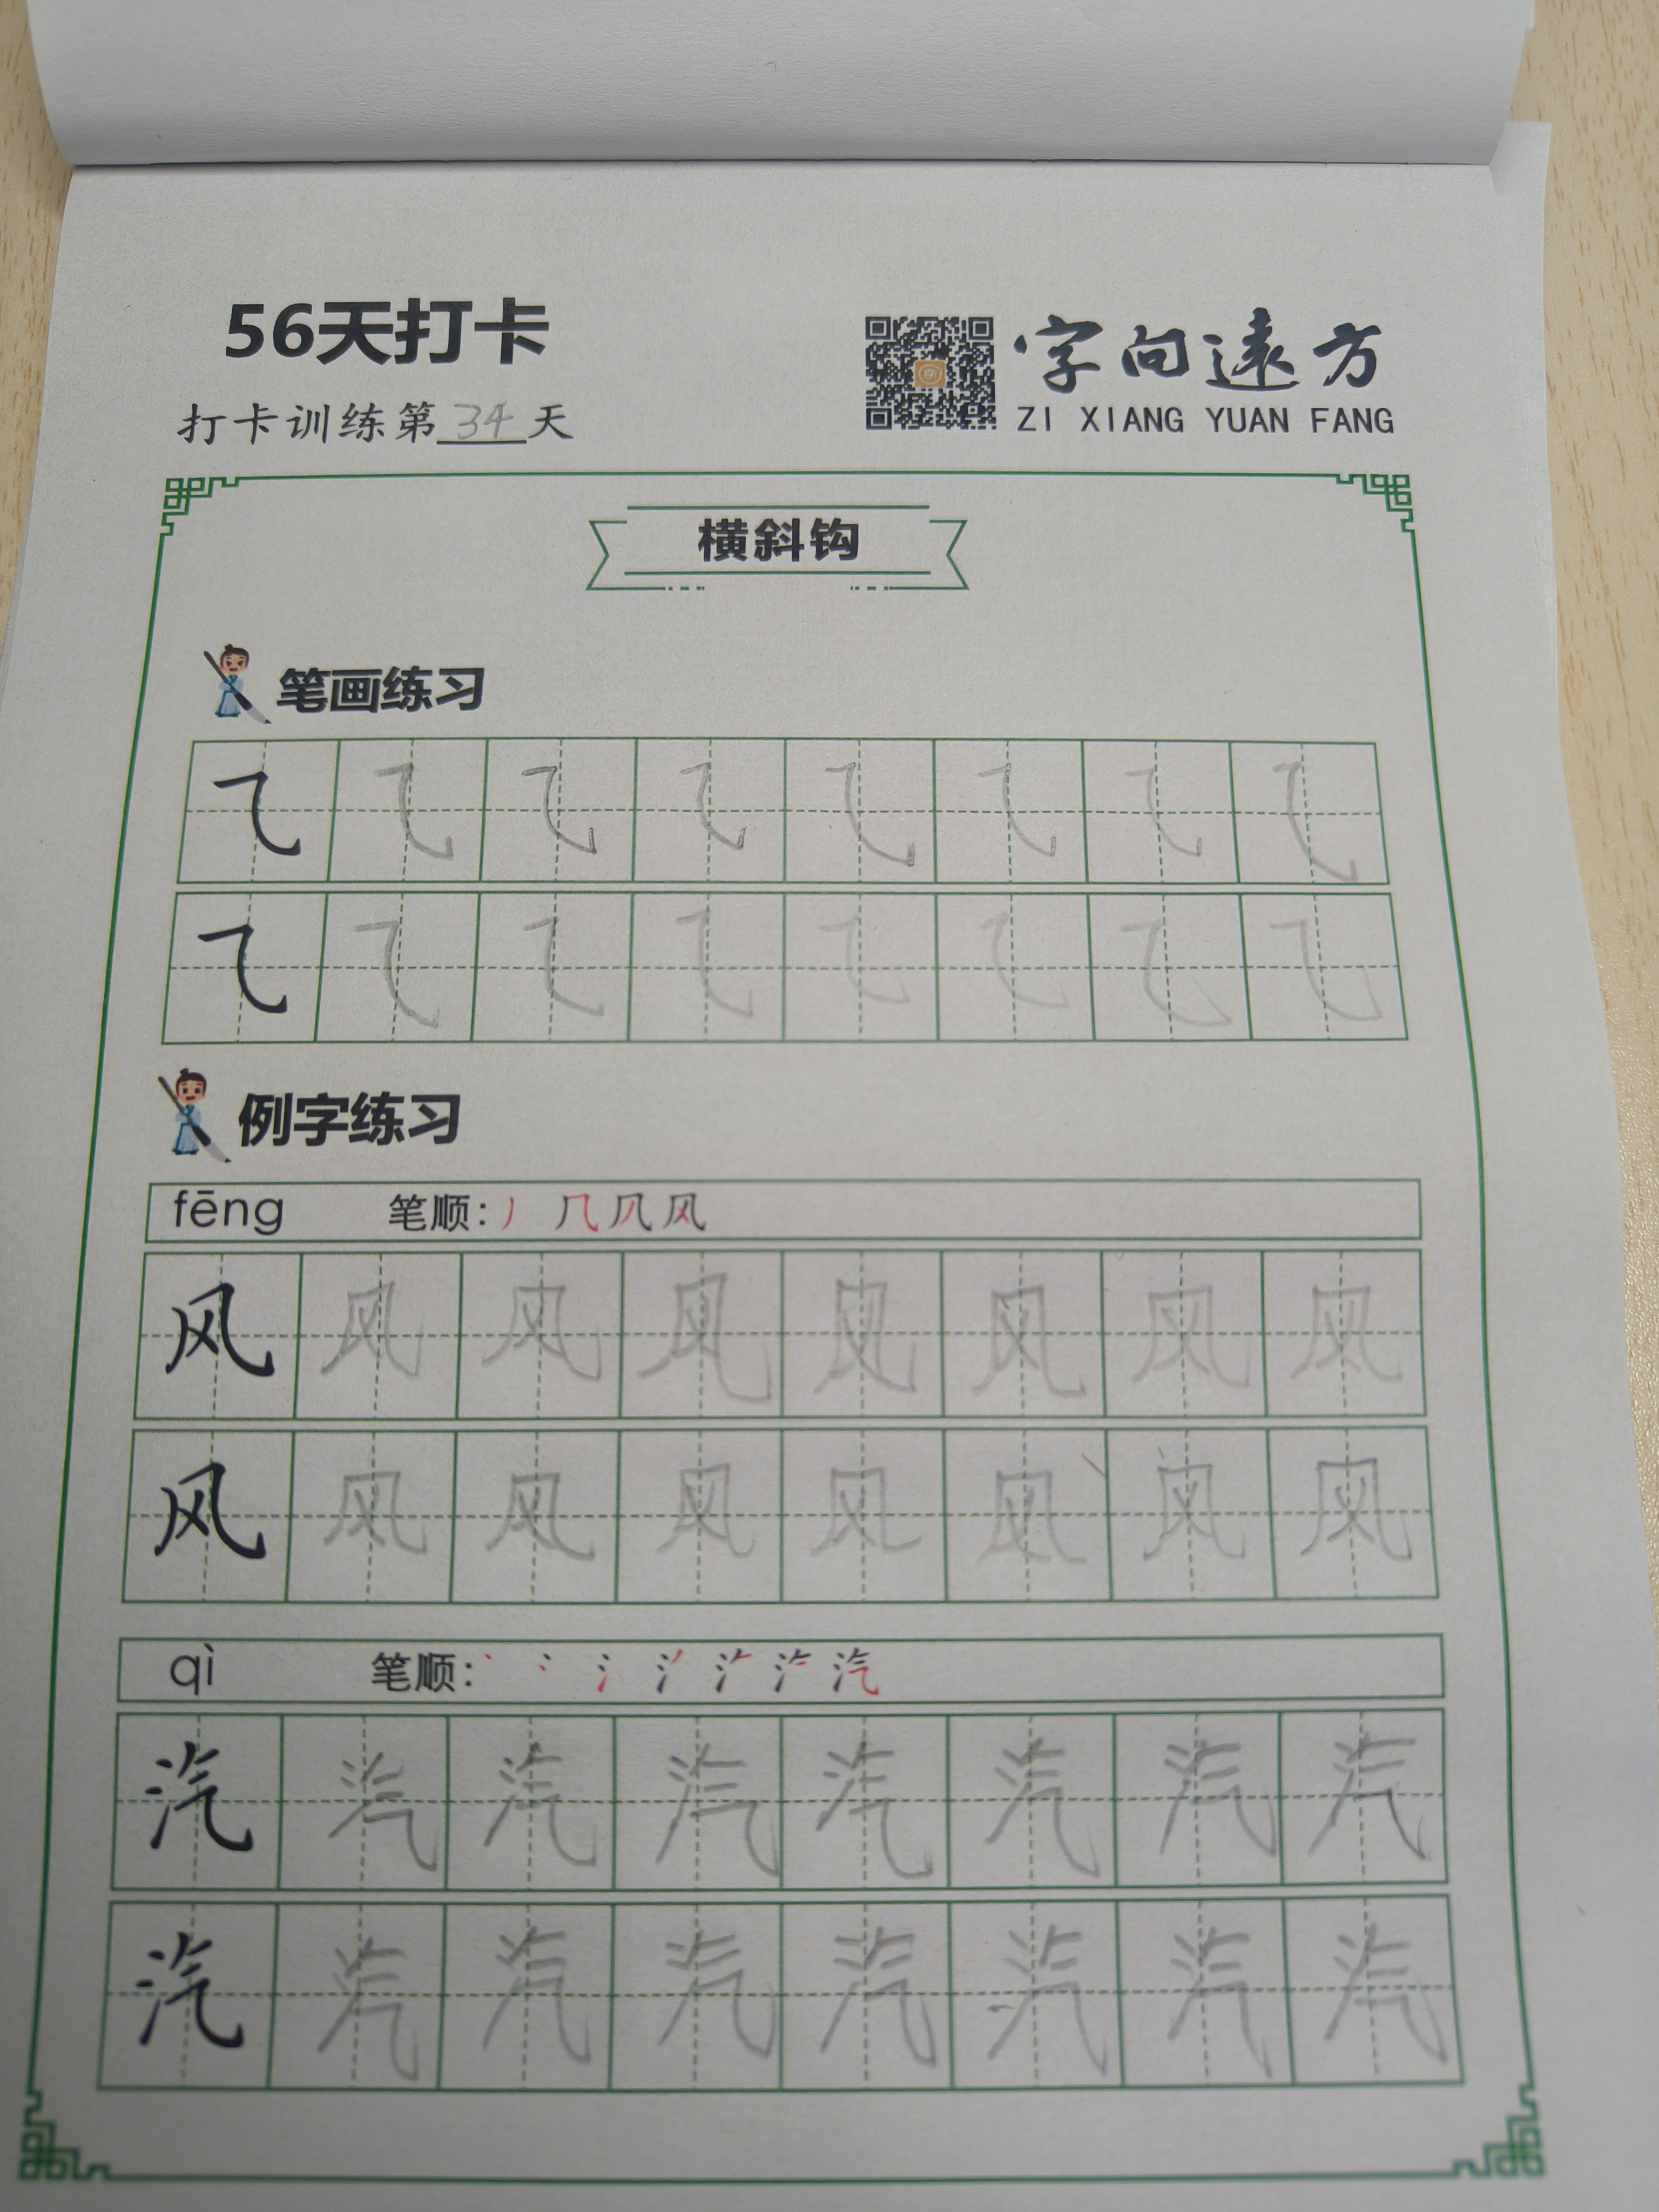 56天打卡
打卡训练第34天
字向遠方
ZI XIANG YUAN FANG
横斜钩
笔画练习
⺄ ⺄ ⺄ ⺄ ⺄ ⺄ ⺄ ⺄
⺄ ⺄ ⺄ ⺄ ⺄ ⺄ ⺄ ⺄
例字练习
fēng 笔顺: 丿 几 凨 风
风 风 风 风 风 风 风 风
风 风 风 风 风 风 风 风
qì 笔顺: 汽
汽 汽 汽 汽 汽 汽 汽 汽
汽 汽 汽 汽 汽 汽 汽 汽